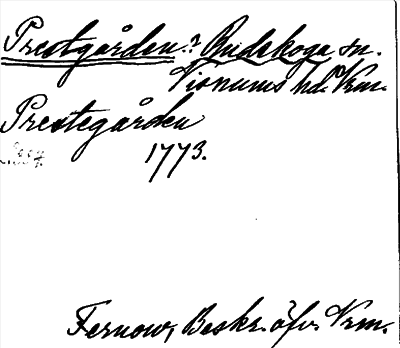 Prestgården? Rudskoga sn.
Visnums hd. Vrm.
Prestegården
1773.
Fernow, Beskr. öfv. Vrm.